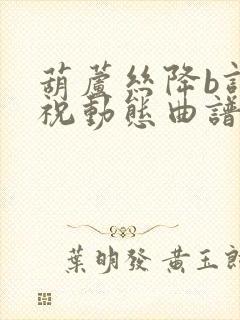 葫蘆絲降b
祝動態曲譜
葉明發 黃玉